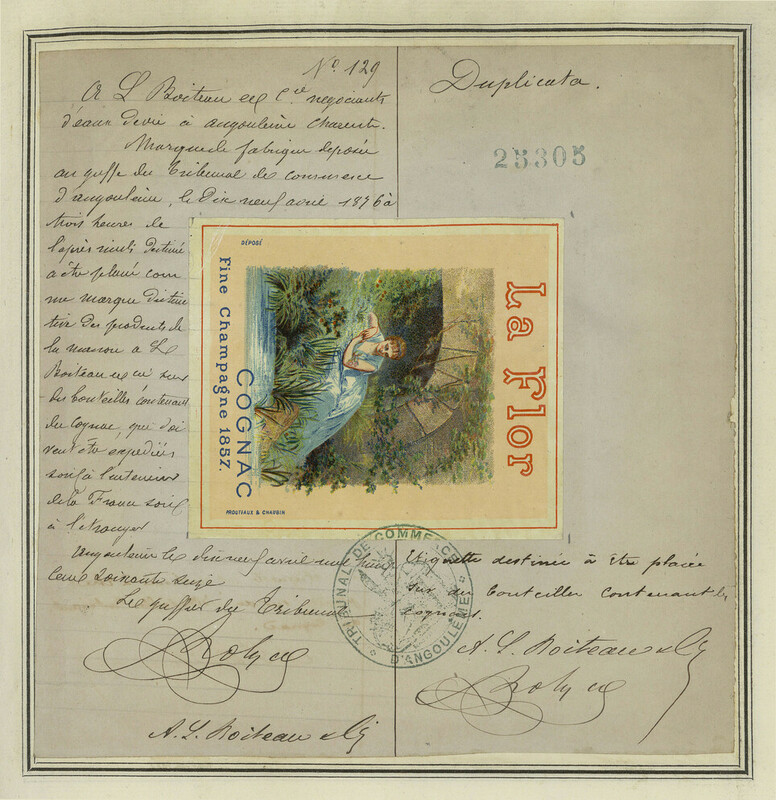 Nº 129
A L Boiteau et Cie négociants
d'eaux de vie à angoulème Charente.
Marque de fabrique déposée
au greffe du Tribunal de commerce
d'angoulème, le Dix neuf avril 1876 à
trois heures de
l'après midi destiné
a être placé com
me marque distinc
tive des produits de
la maison A L
Boiteau et Cie sur
des bouteilles contenant
du cognac, qui doi
vent être expédiés
soit à l'intérieur
de la France soit
à l'étranger
Angoulème le dix neuf avril mil huit
cent soixante seize
Le greffier du Tribunal
A. L. Boiteau & Cie
Duplicata.
25305
DÉPOSÉ
La Flor
COGNAC
Fine Champagne 1857.
PROUTEAUX & CHASSIN
TRIBUNAL DE COMMERCE
D'ANGOULEME
Etiquette destinée à être placée
sur des bouteilles contenant des
cognacs.
A. L. Boiteau & Cie